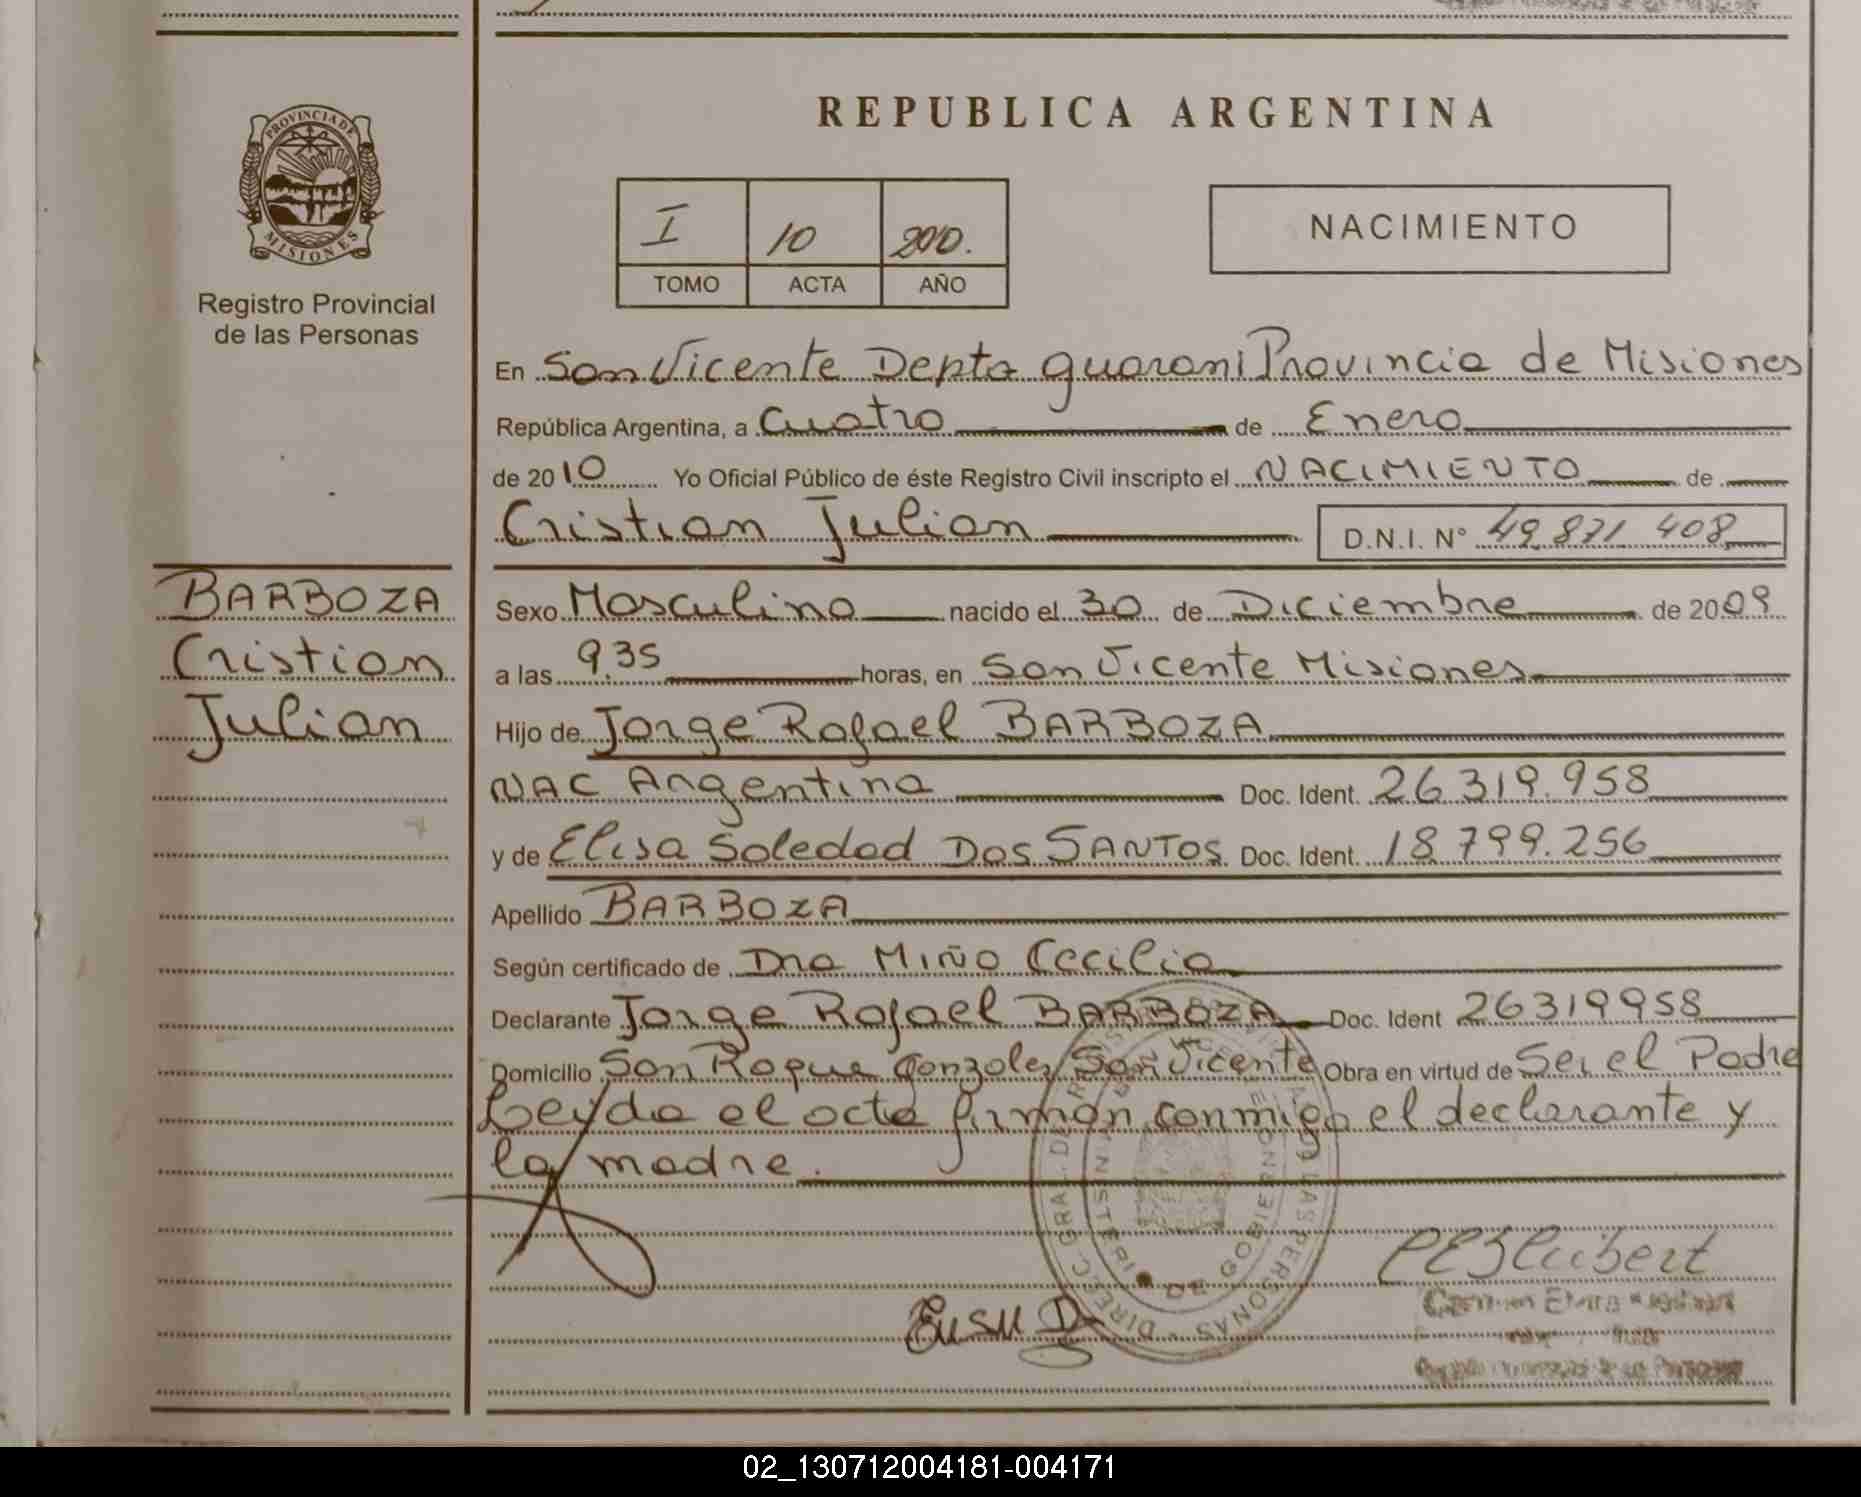 PROVINCIA DE
MISIONES
Registro Provincial
de las Personas
BARBOZA
Cristian
Julian
REPUBLICA ARGENTINA
I 10 2010.
TOMO ACTA AÑO
NACIMIENTO
En San Vicente Depto guarani Provincia de Misiones
República Argentina, a Cuatro de Enero
de 2010 Yo Oficial Público de éste Registro Civil inscripto el NACIMIENTO de
Cristian Julian D.N.I. N° 49.871 408
Sexo Masculino nacido el 30 de Diciembre de 2009
a las 9.35 horas, en San Vicente Misiones
Hijo de Jorge Rafael BARBOZA
NAC Argentina Doc. Ident. 26.319.958
y de Elisa Soledad DOS SANTOS Doc. Ident. 18.799.256
Apellido BARBOZA
Según certificado de Dra MIÑO Cecilia
Declarante Jorge Rafael BARBOZA Doc. Ident 26319958
Domicilio San Roque Gonzalez San Vicente Obra en virtud de Ser el Padre
Leyda el acta firman conmigo el declarante y
la madre.
02_130712004181-004171